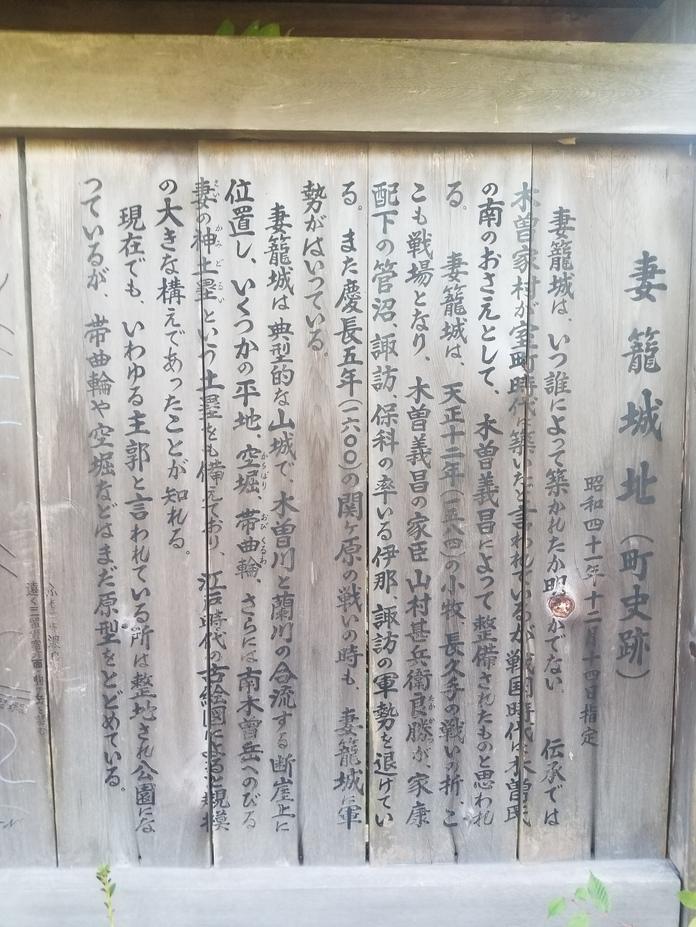 妻籠城址(町史跡)
昭和四十一年十二月十四日指定
妻籠城は、いつ誰によって築かれたか明かでない。伝承では
木曽家村が室町時代に築いたと言われているが戦国時代は木曽氏
の南のおさえとして、木曽義昌によって整備されたものと思われ
る。妻籠城は、天正十二年(一五八四)の小牧、長久手の戦いの折、こ
こも戦場となり、木曽義昌の家臣山村甚兵衛良勝が、家康
配下の管沼、諏訪、保科の率いる伊那、諏訪の軍勢を退けてい
る。また慶長五年(一六〇〇)の関ヶ原の戦いの時も、妻籠城に軍
勢がはいっている。
妻籠城は典型的な山城で、木曽川と蘭川の合流する断崖上に
位置し、いくつかの平地、空堀、帯曲輪、さらには南木曽岳へのびる
妻の神土塁という土塁をも備えており、江戸時代の古絵図によると規模
の大きな構えであったことが知れる。
現在でも、いわゆる主郭と言われている所は整地され公園にな
っているが、帯曲輪や空堀などはまだ原型をとどめている。